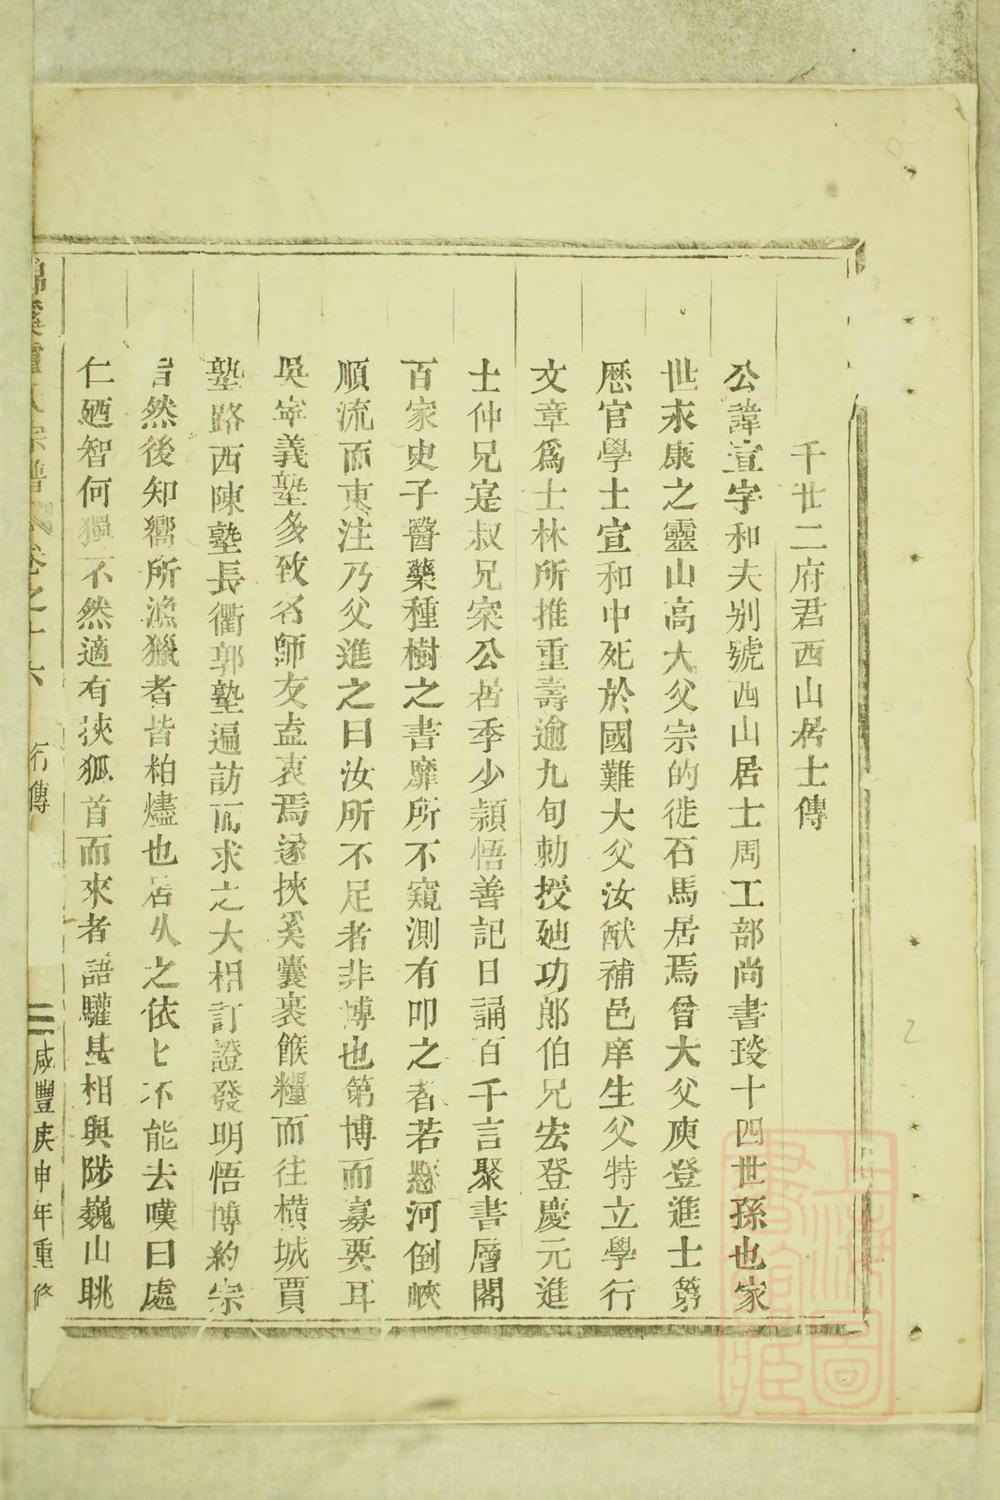 千廿二府君西山居士傳
公諱宣字和夫别號西山居士周工部尚書琰十四世孫也家
世永康之靈山高大父宗的徙石馬居焉曾大父庾登進士第
歷官學士宣和中死於國難大父汝猷補邑庠生父特立學行
文章爲士林所推重壽逾九旬勅授廸功郎伯兄宏登慶元進
士仲兄寔叔兄寀公居季少穎悟善記日誦百千言聚書層閣
百家史子醫藥種樹之書靡所不窺測有叩之者若懸河倒峽
順流而東注乃父進之曰汝所不足者非博也第博而寡要耳
吳寧義塾多致名師友盍衷焉遂挾奚囊裹餱糧而往橫城賈
塾路西陳塾長衢郭塾遍訪而求之大相訂證發明悟博約宗
旨然後知嚮所漁獵者皆粕燼也居久之依匕不能去嘆曰處
仁廼智何獨不然適有挾狐首而來者語驩甚相與陟巍山眺
氏宗譜 卷之十六 行傳 咸豐庚申年重修
上海圖書館藏